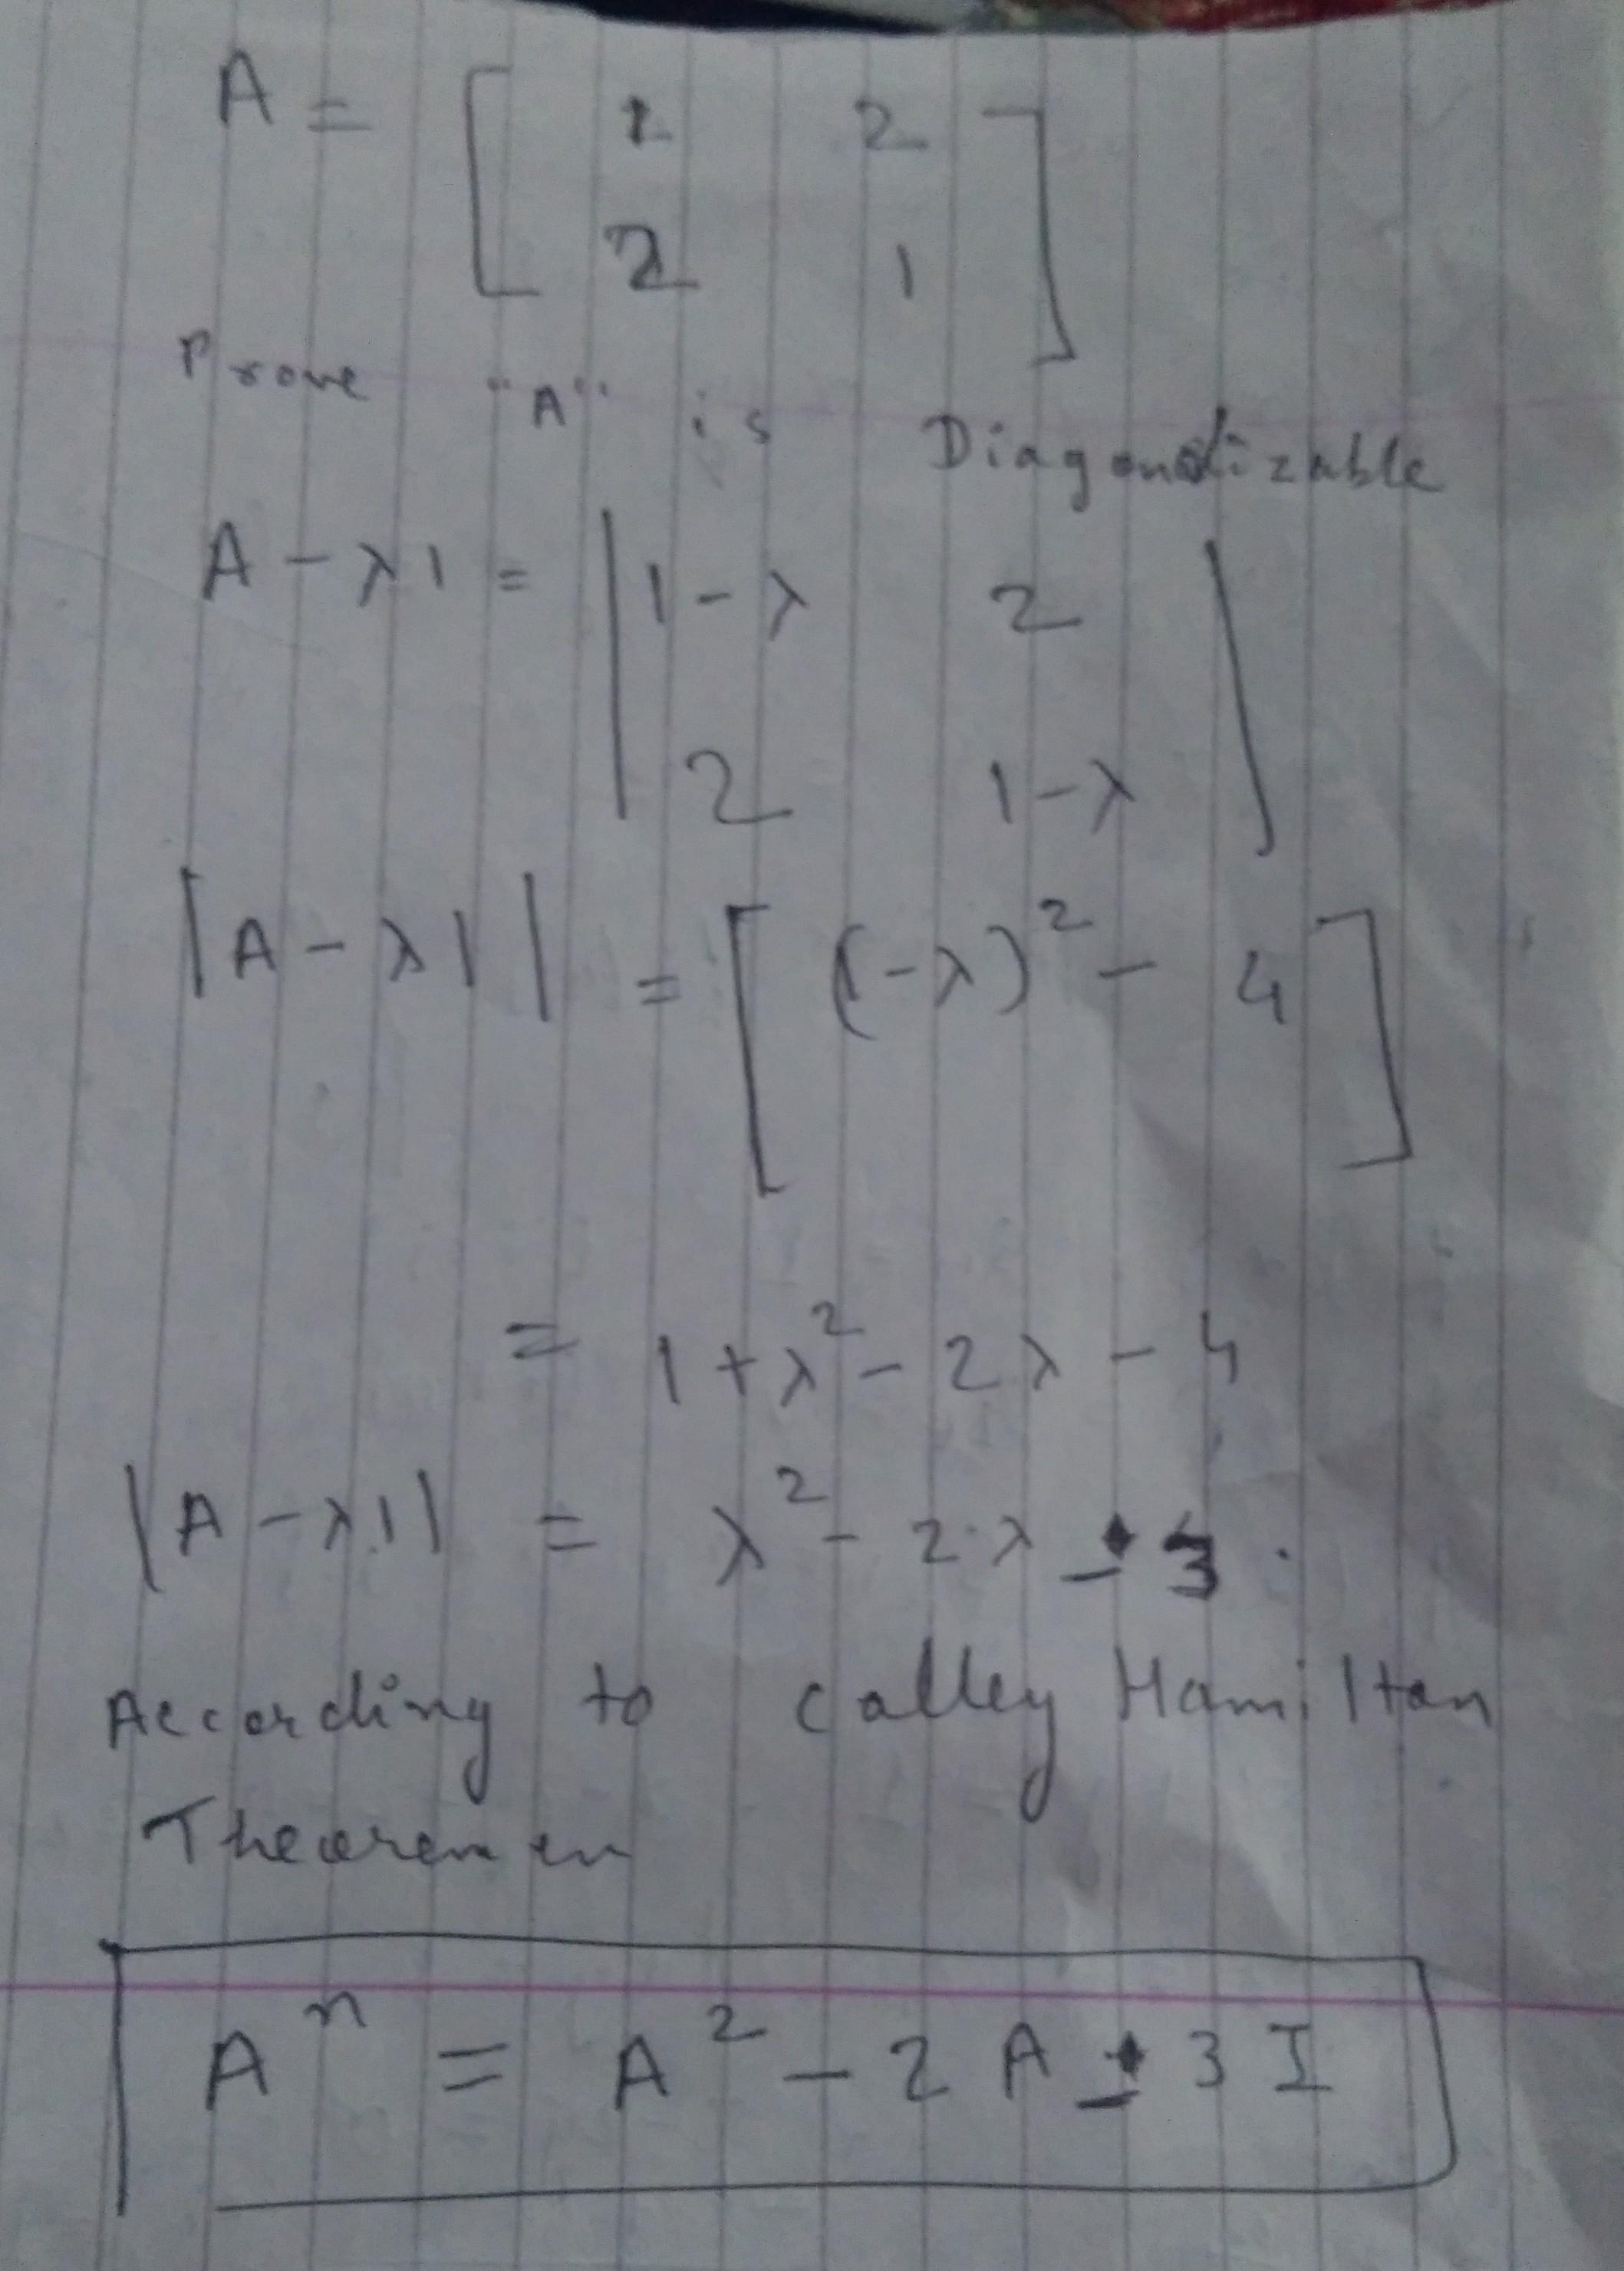 A = [ 1 2
2 1 ]
Prove "A" is Diagonalizable
A - λ1 = | 1-λ 2
2 1-λ |
|A - λ1| = [ (1-λ)² - 4 ]
= 1 + λ² - 2λ - 4
|A - λ1| = λ² - 2λ - 3.
According to calley Hamiltan
Theorem
Aⁿ = A² - 2A - 3I